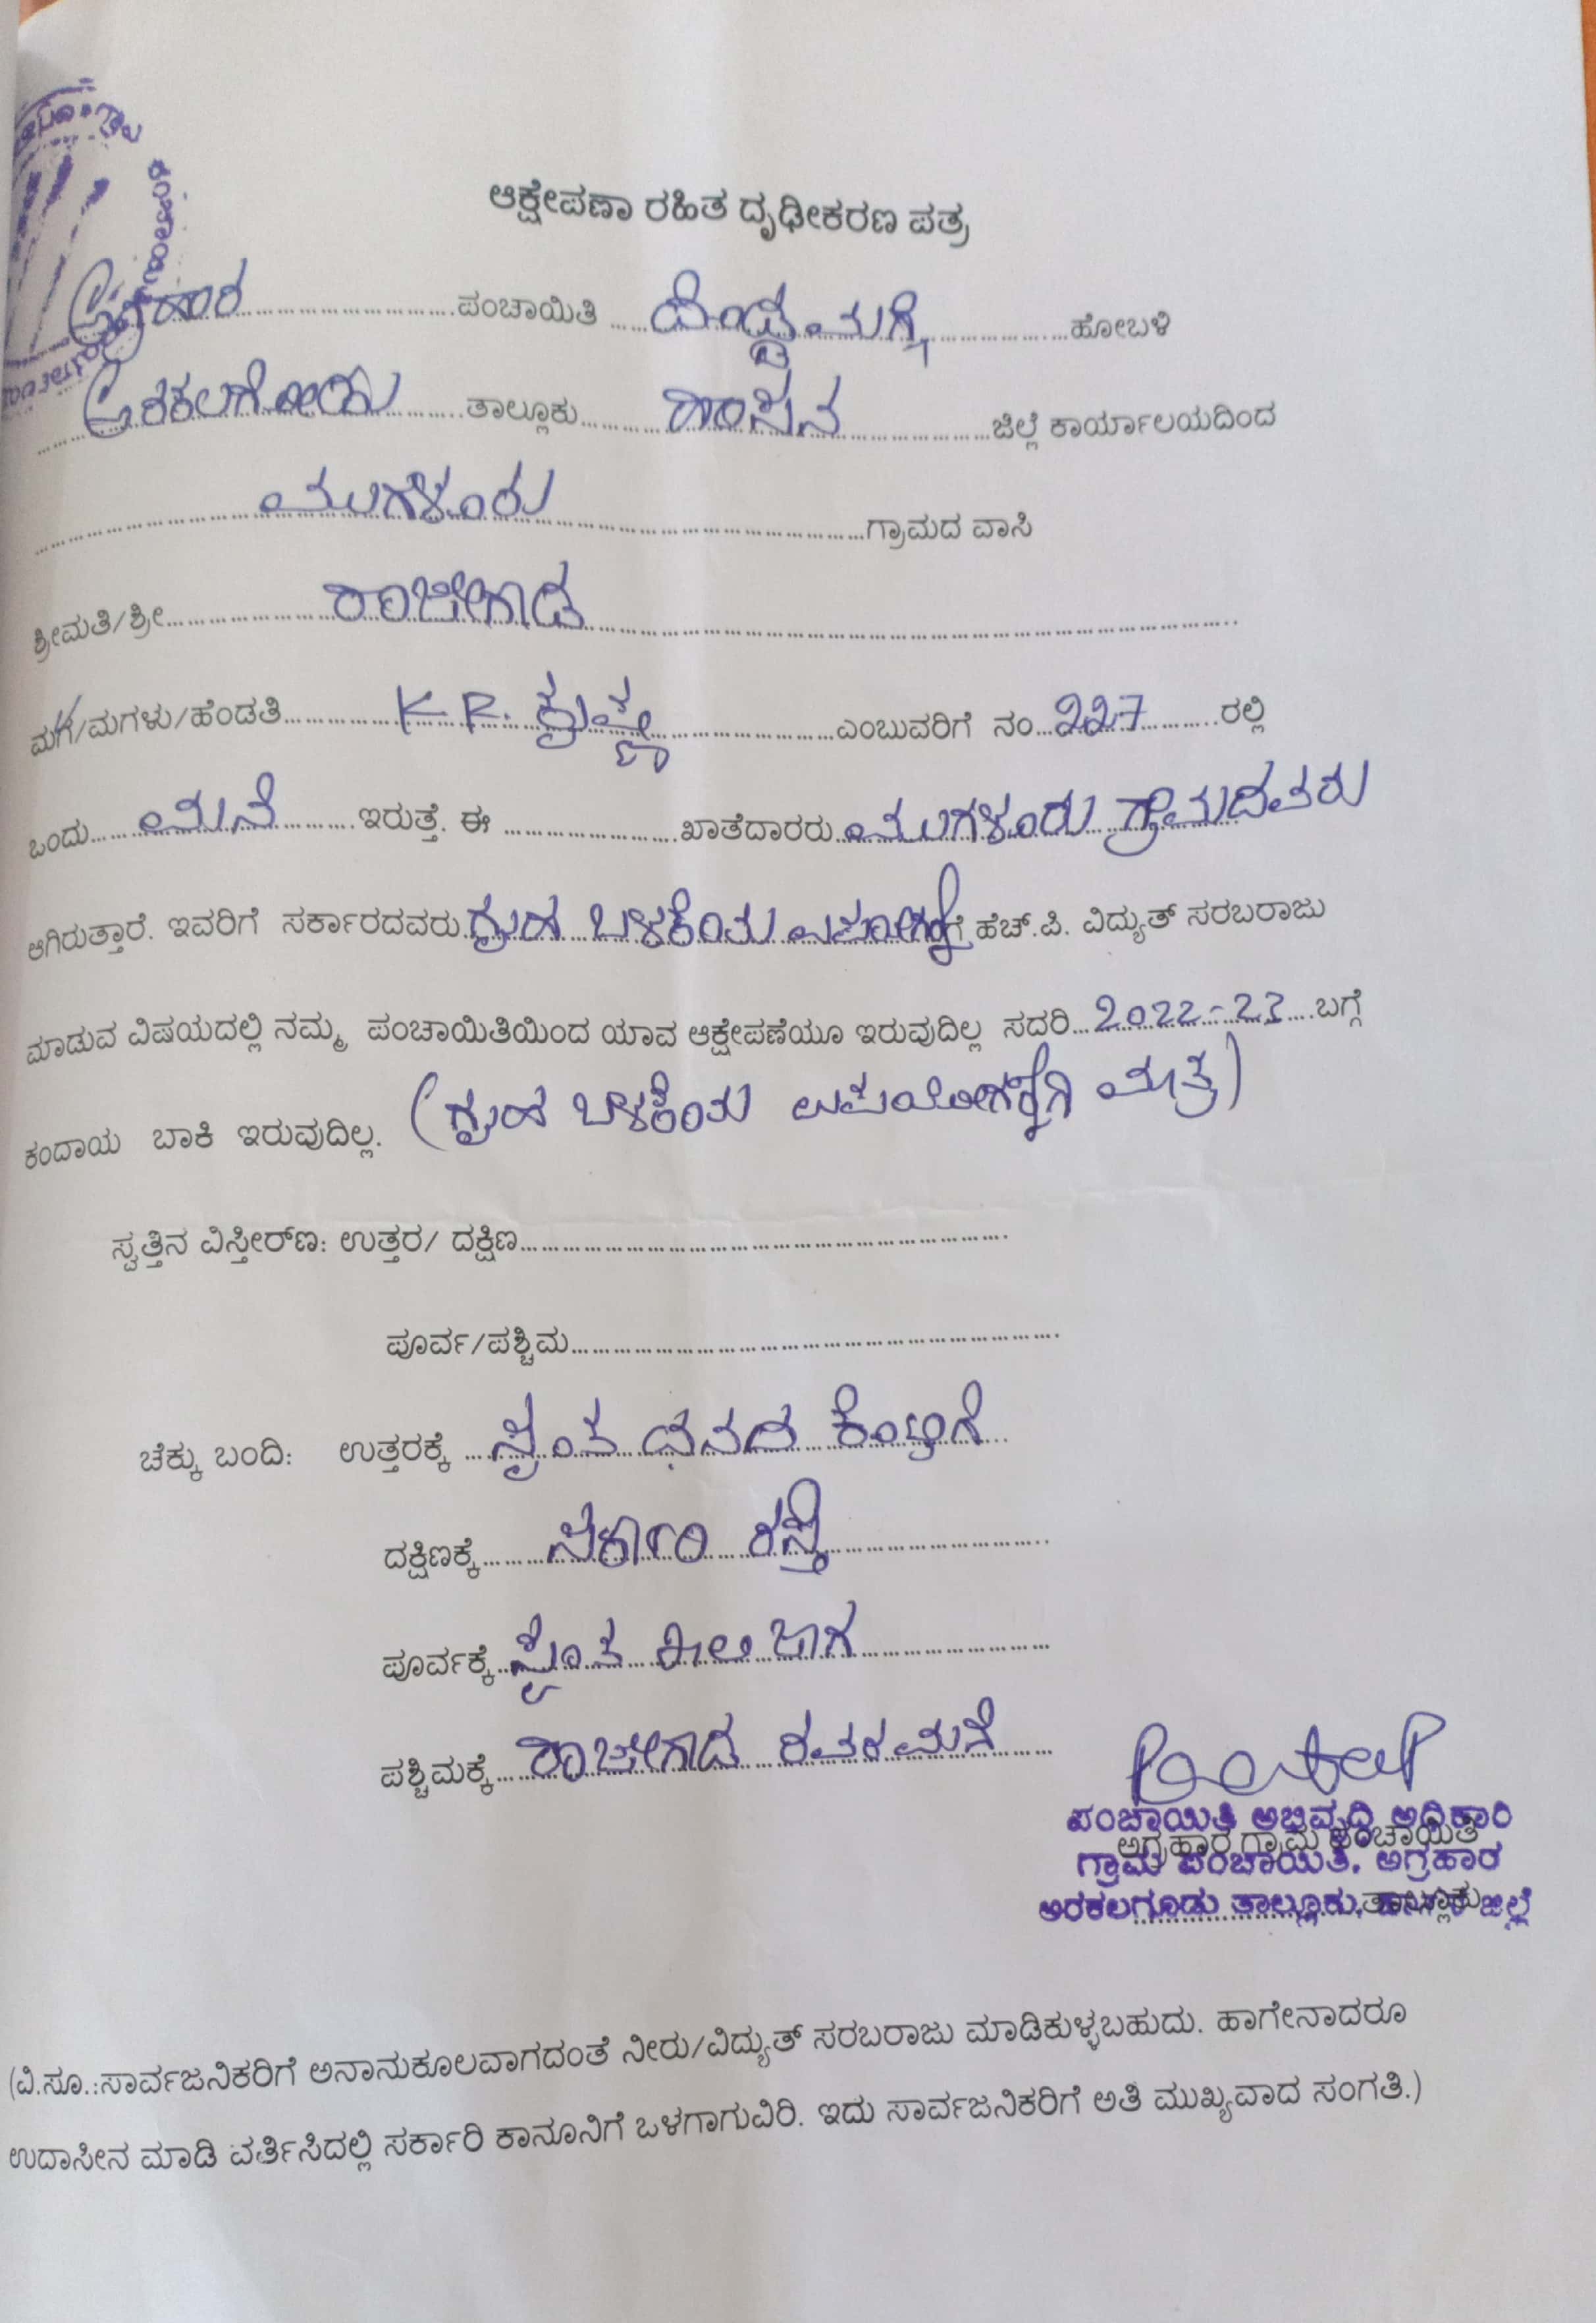 ಆಕ್ಷೇಪಣಾ ರಹಿತ ದೃಢೀಕರಣ ಪತ್ರ
ಅಗ್ರಹಾರ ಪಂಚಾಯಿತಿ ದೊಡ್ಡಮಗ್ಗೆ ಹೋಬಳಿ
ಅರಕಲಗೋಡು ತಾಲ್ಲೂಕು ಹಾಸನ ಜಿಲ್ಲೆ ಕಾರ್ಯಾಲಯದಿಂದ
ಮುಗಳೂರು ಗ್ರಾಮದ ವಾಸಿ
ಶ್ರೀಮತಿ/ಶ್ರೀ ರಾಜೇಗೌಡ
ಮಗ/ಮಗಳು/ಹೆಂಡತಿ K R. ಕೃಷ್ಣ ಎಂಬುವರಿಗೆ ನಂ 227 ರಲ್ಲಿ
ಒಂದು ಮನೆ ಇರುತ್ತೆ. ಈ ಖಾತೆದಾರರು ಮುಗಳೂರು ಗ್ರಾಮದವರು
ಆಗಿರುತ್ತಾರೆ. ಇವರಿಗೆ ಸರ್ಕಾರದವರು ಗೃಹ ಬಳಕೆಯ ಗೆ ಹೆಚ್.ಪಿ. ವಿದ್ಯುತ್ ಸರಬರಾಜು
ಮಾಡುವ ವಿಷಯದಲ್ಲಿ ನಮ್ಮ ಪಂಚಾಯಿತಿಯಿಂದ ಯಾವ ಆಕ್ಷೇಪಣೆಯೂ ಇರುವುದಿಲ್ಲ ಸದರಿ 2022-23 ಬಗ್ಗೆ
ಕಂದಾಯ ಬಾಕಿ ಇರುವುದಿಲ್ಲ. (ಗೃಹ ಬಳಕೆಯ ಉಪಯೋಗಕ್ಕಾಗಿ ಮಾತ್ರ)
ಸ್ವತ್ತಿನ ವಿಸ್ತೀರ್ಣ: ಉತ್ತರ/ ದಕ್ಷಿಣ
ಪೂರ್ವ/ಪಶ್ಚಿಮ
ಚೆಕ್ಕು ಬಂದಿ: ಉತ್ತರಕ್ಕೆ ಸ್ವಂತ ದನದ ಕೊಟ್ಟಿಗೆ
ದಕ್ಷಿಣಕ್ಕೆ ಸರ್ಕಾರಿ ರಸ್ತೆ
ಪೂರ್ವಕ್ಕೆ ಸ್ವಂತ ಖಾಲಿ ಜಾಗ
ಪಶ್ಚಿಮಕ್ಕೆ ರಾಜೇಗೌಡ ರವರ ಮನೆ
ಪಂಚಾಯಿತಿ ಅಭಿವೃದ್ಧಿ ಅಧಿಕಾರಿ
ಅಗ್ರಹಾರ ಗ್ರಾಮ ಪಂಚಾಯಿತಿ
ಗ್ರಾಮ ಪಂಚಾಯಿತಿ, ಅಗ್ರಹಾರ
ಅರಕಲಗೂಡು ತಾಲ್ಲೂಕು, ಹಾಸನ ಜಿಲ್ಲೆ
ತಾಲ್ಲೂಕು
(ವಿ.ಸೂ.:ಸಾರ್ವಜನಿಕರಿಗೆ ಅನಾನುಕೂಲವಾಗದಂತೆ ನೀರು/ವಿದ್ಯುತ್ ಸರಬರಾಜು ಮಾಡಿಕುಳ್ಳಬಹುದು. ಹಾಗೇನಾದರೂ
ಉದಾಸೀನ ಮಾಡಿ ವರ್ತಿಸಿದಲ್ಲಿ ಸರ್ಕಾರಿ ಕಾನೂನಿಗೆ ಒಳಗಾಗುವಿರಿ. ಇದು ಸಾರ್ವಜನಿಕರಿಗೆ ಅತಿ ಮುಖ್ಯವಾದ ಸಂಗತಿ.)